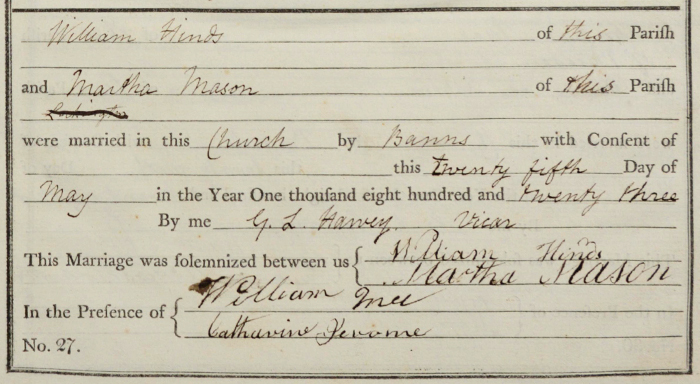 William Hinds of this Pariſh
and Martha Mason of this Pariſh
were married in this Church by Banns with Consent of
this twenty fifth Day of
May in the Year One thouſand eight hundred and twenty three
By me G. L. Harvey Vicar
This Marriage was ſolemnized between us { William Hinds
Martha Mason
In the Preſence of { William
Catharine Jerome
No. 27.